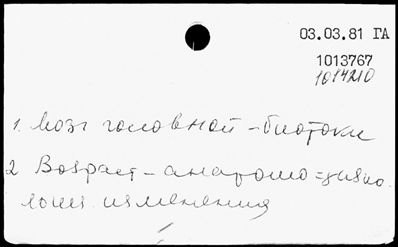 03.03.81 ГА
1013767
1014210
1. Мозг головной - биотоки
2 Возраст - анатомо=физио
логич. изменения